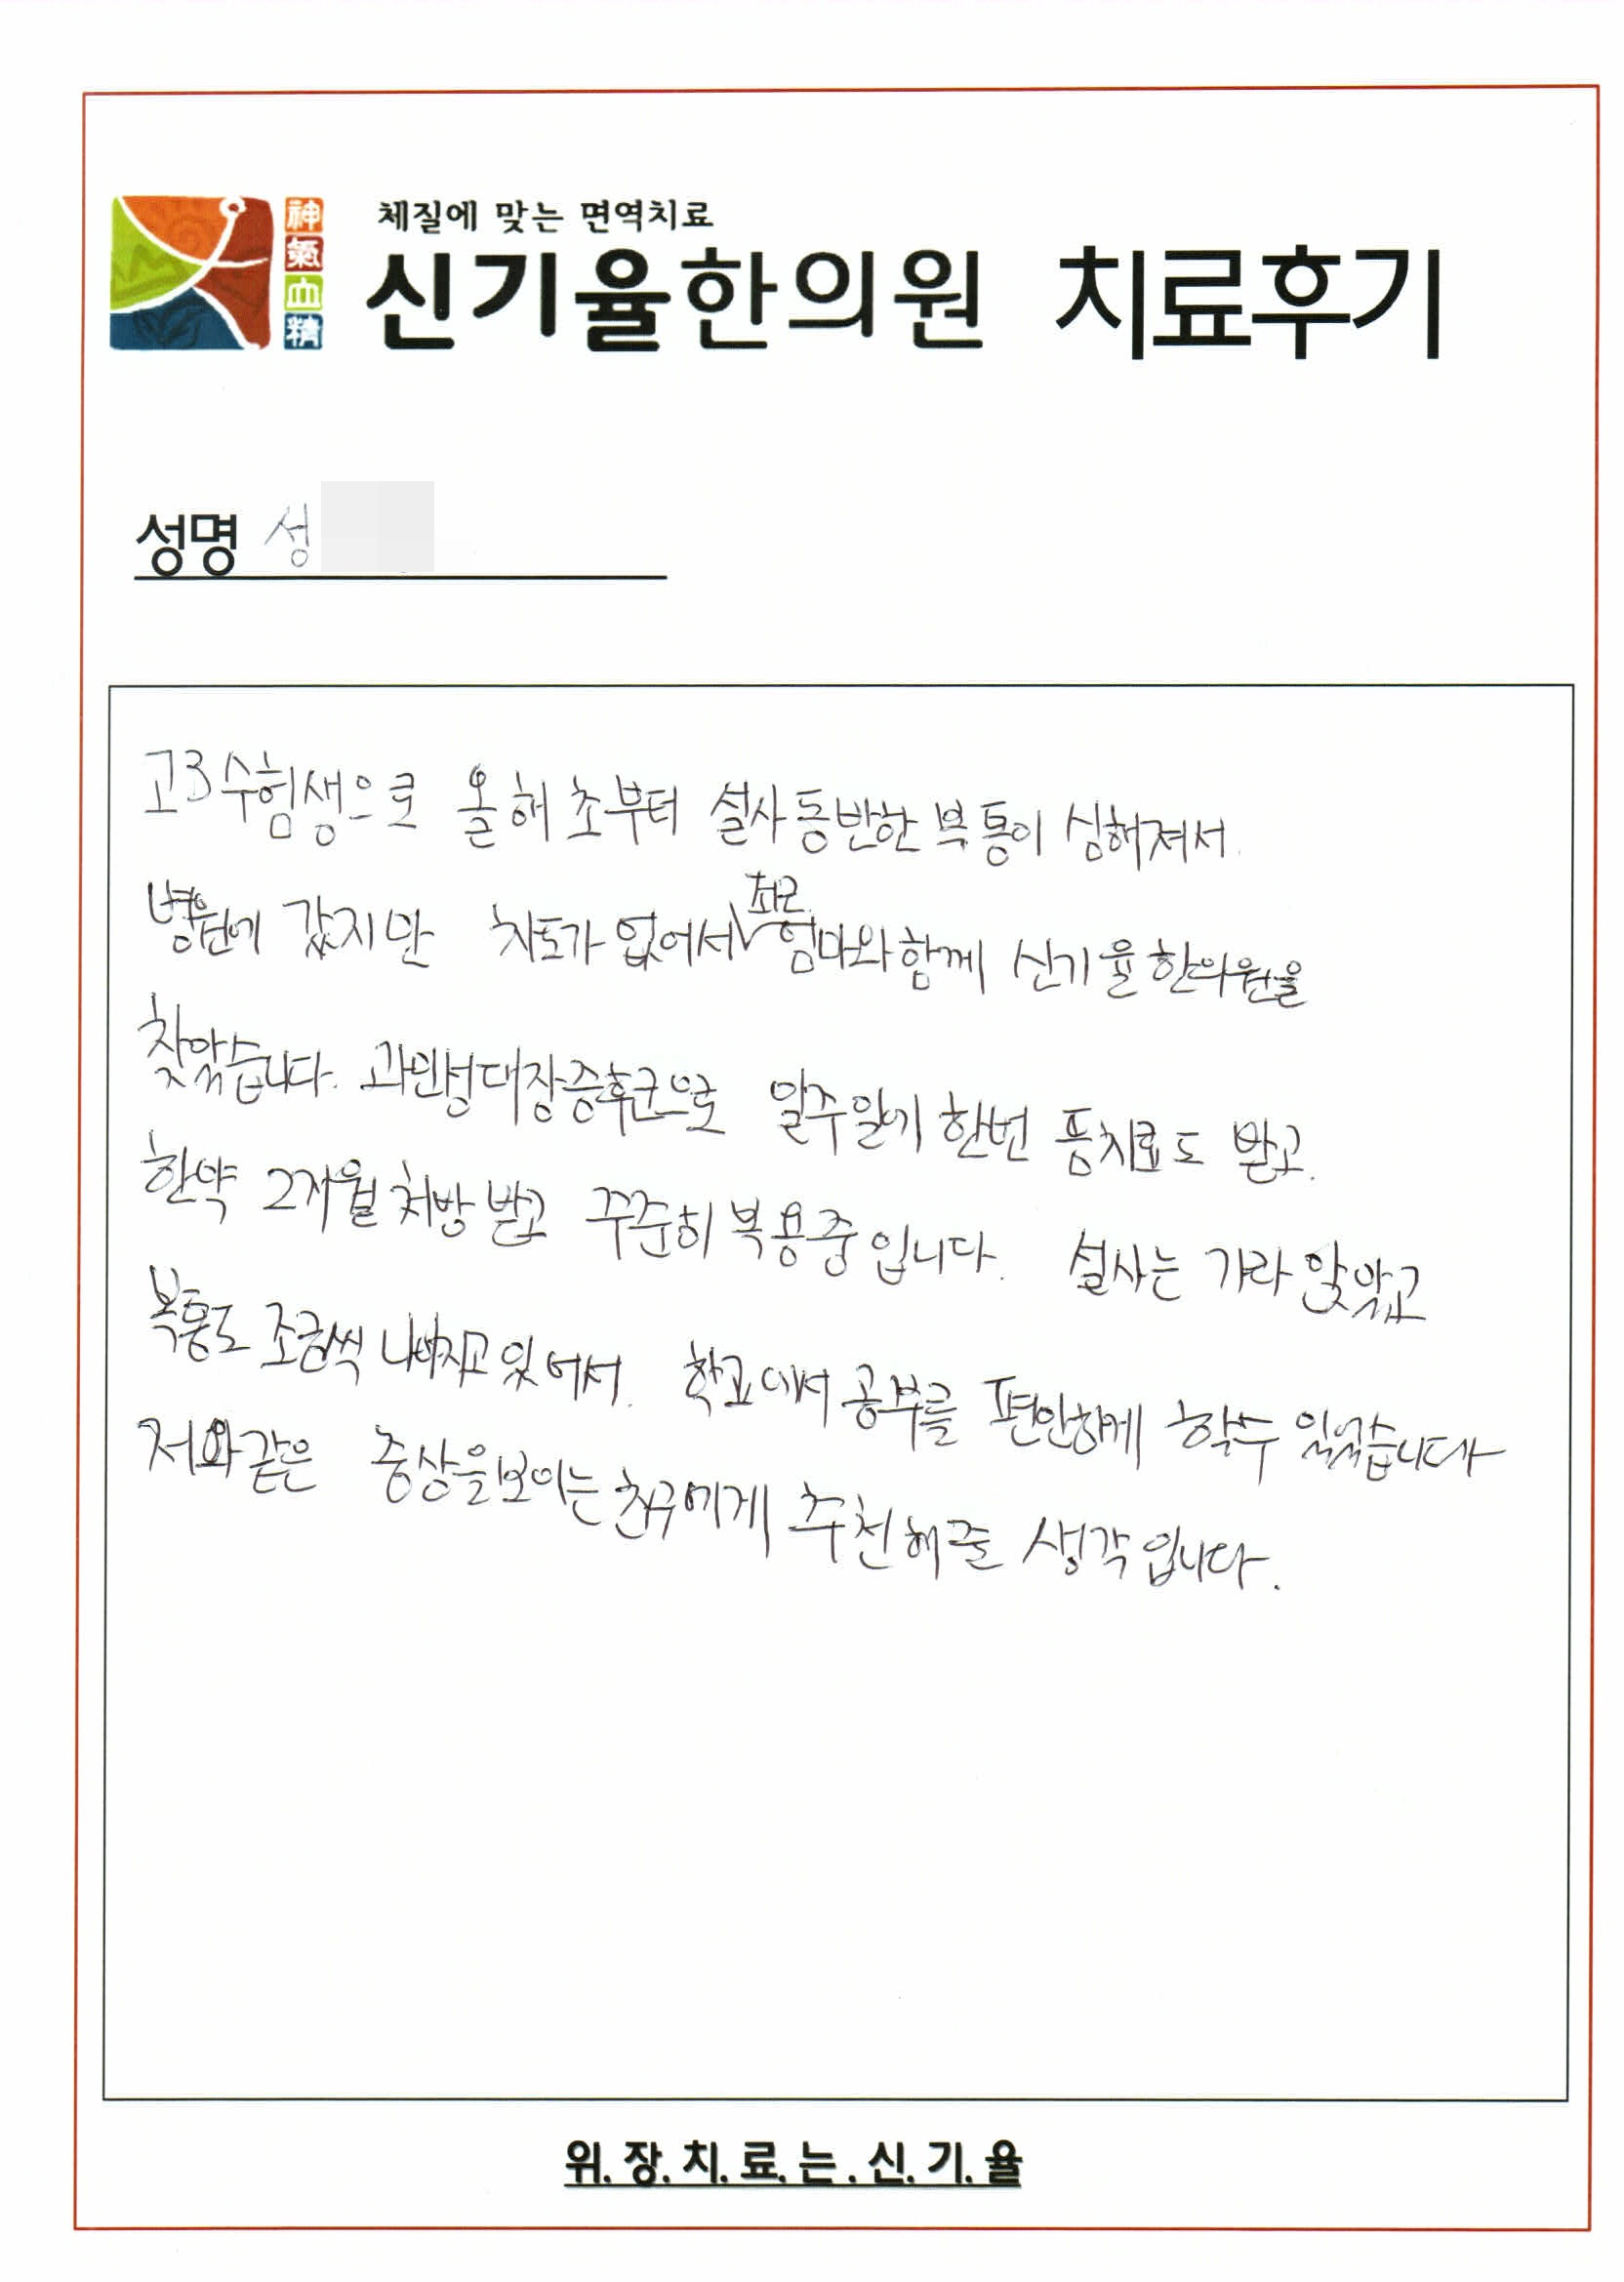 체질에 맞는 면역치료
神氣血精
신기율한의원 치료후기
성명 성
고3수험생으로 올해 초부터 설사동반한 복통이 심해져서
병원에 갔지만 차도가 없어서 최근 엄마와함께 신기율한의원을
찾았습니다. 과민성대장증후군으로 일주일에 한번 통치료도 받고.
한약 2개월 처방 받고 꾸준히 복용중입니다. 설사는 가라 앉았고
복통도 조금씩 나아지고 있어서. 학교에서 공부를 편안하게 할수 있었습니다
저와같은 증상을보이는 친구에게 추천해줄 생각입니다.
위.장.치.료.는.신.기.율